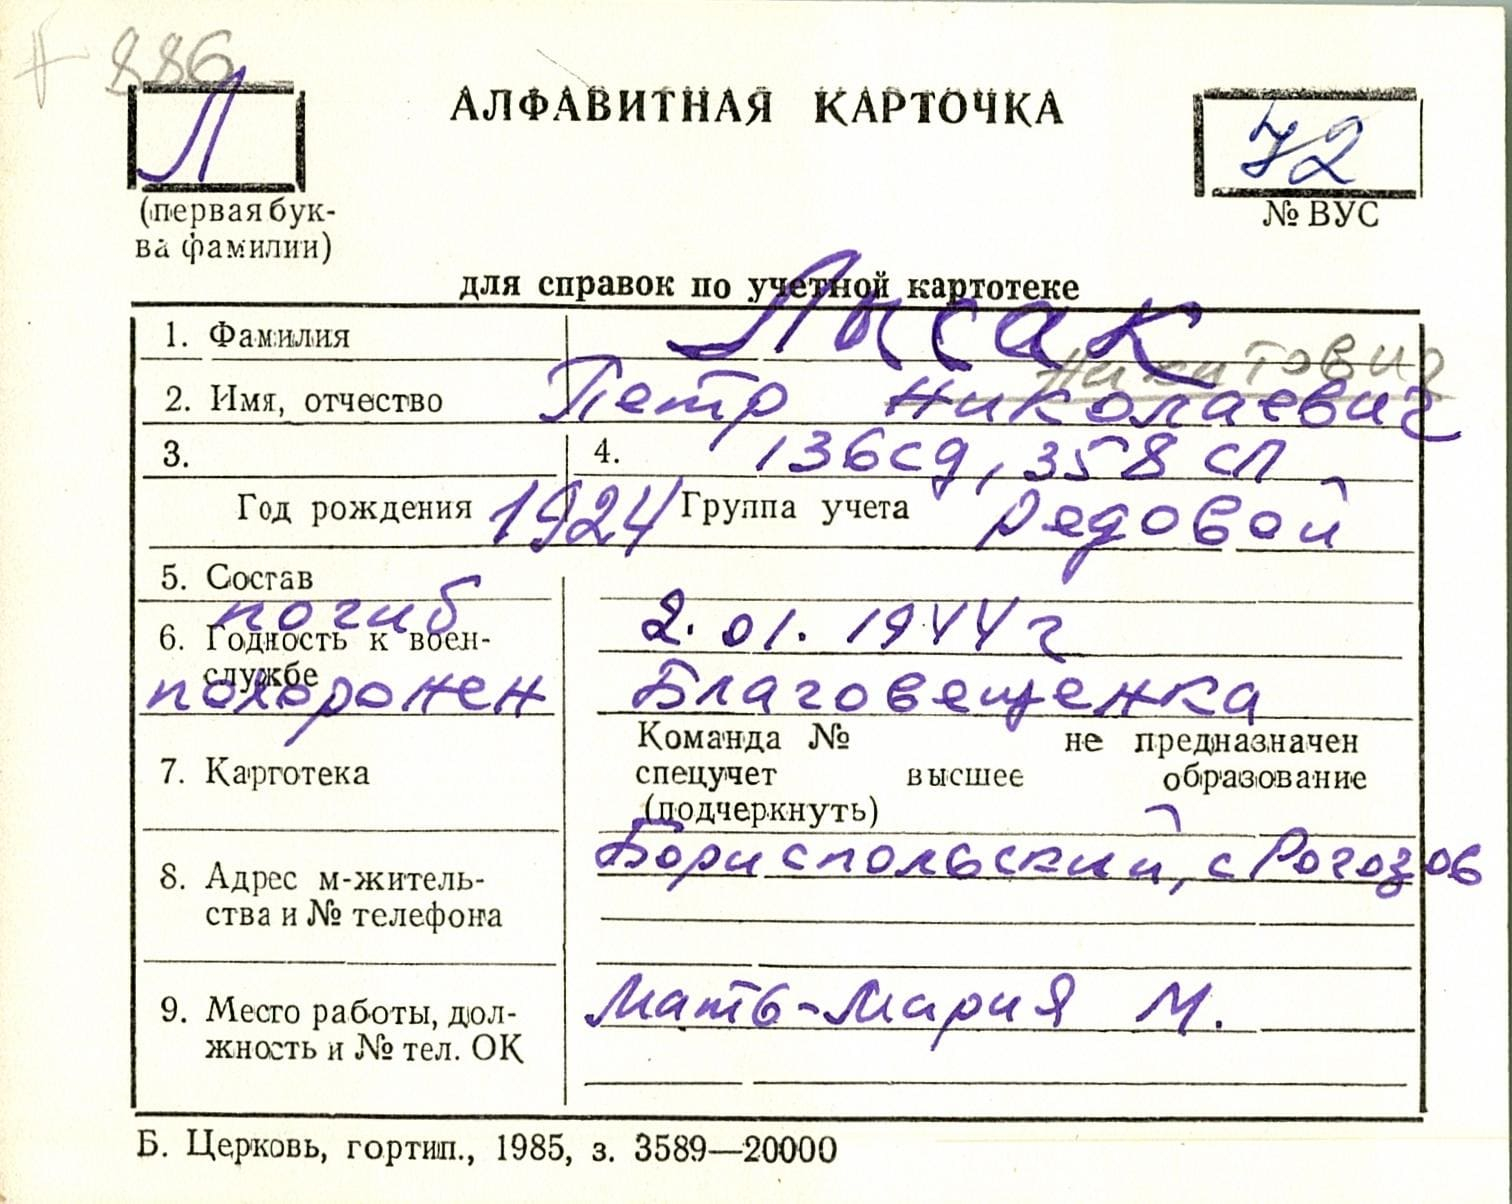 + 886
Л
АЛФАВИТНАЯ КАРТОЧКА
72
(первая бук-
ва фамилии)
№ ВУС
для справок по учетной картотеке
1. Фамилия Лысак
Никитович
2. Имя, отчество Петр Николаевич
3. 4. 136сд, 358 сп
Год рождения 1924 Группа учета рядовой
5. Состав
погиб 2.01.1944 г
6. Годность к воен-
службе
похоронен Благовещенка
Команда № не предназначен
7. Картотека спецучет высшее образование
(подчеркнуть)
Бориспольский, с Рогозов
8. Адрес м-житель-
ства и № телефона
9. Место работы, дол- Мать-Мария М.
жность и № тел. ОК
Б. Церковь, гортип., 1985, з. 3589—20000